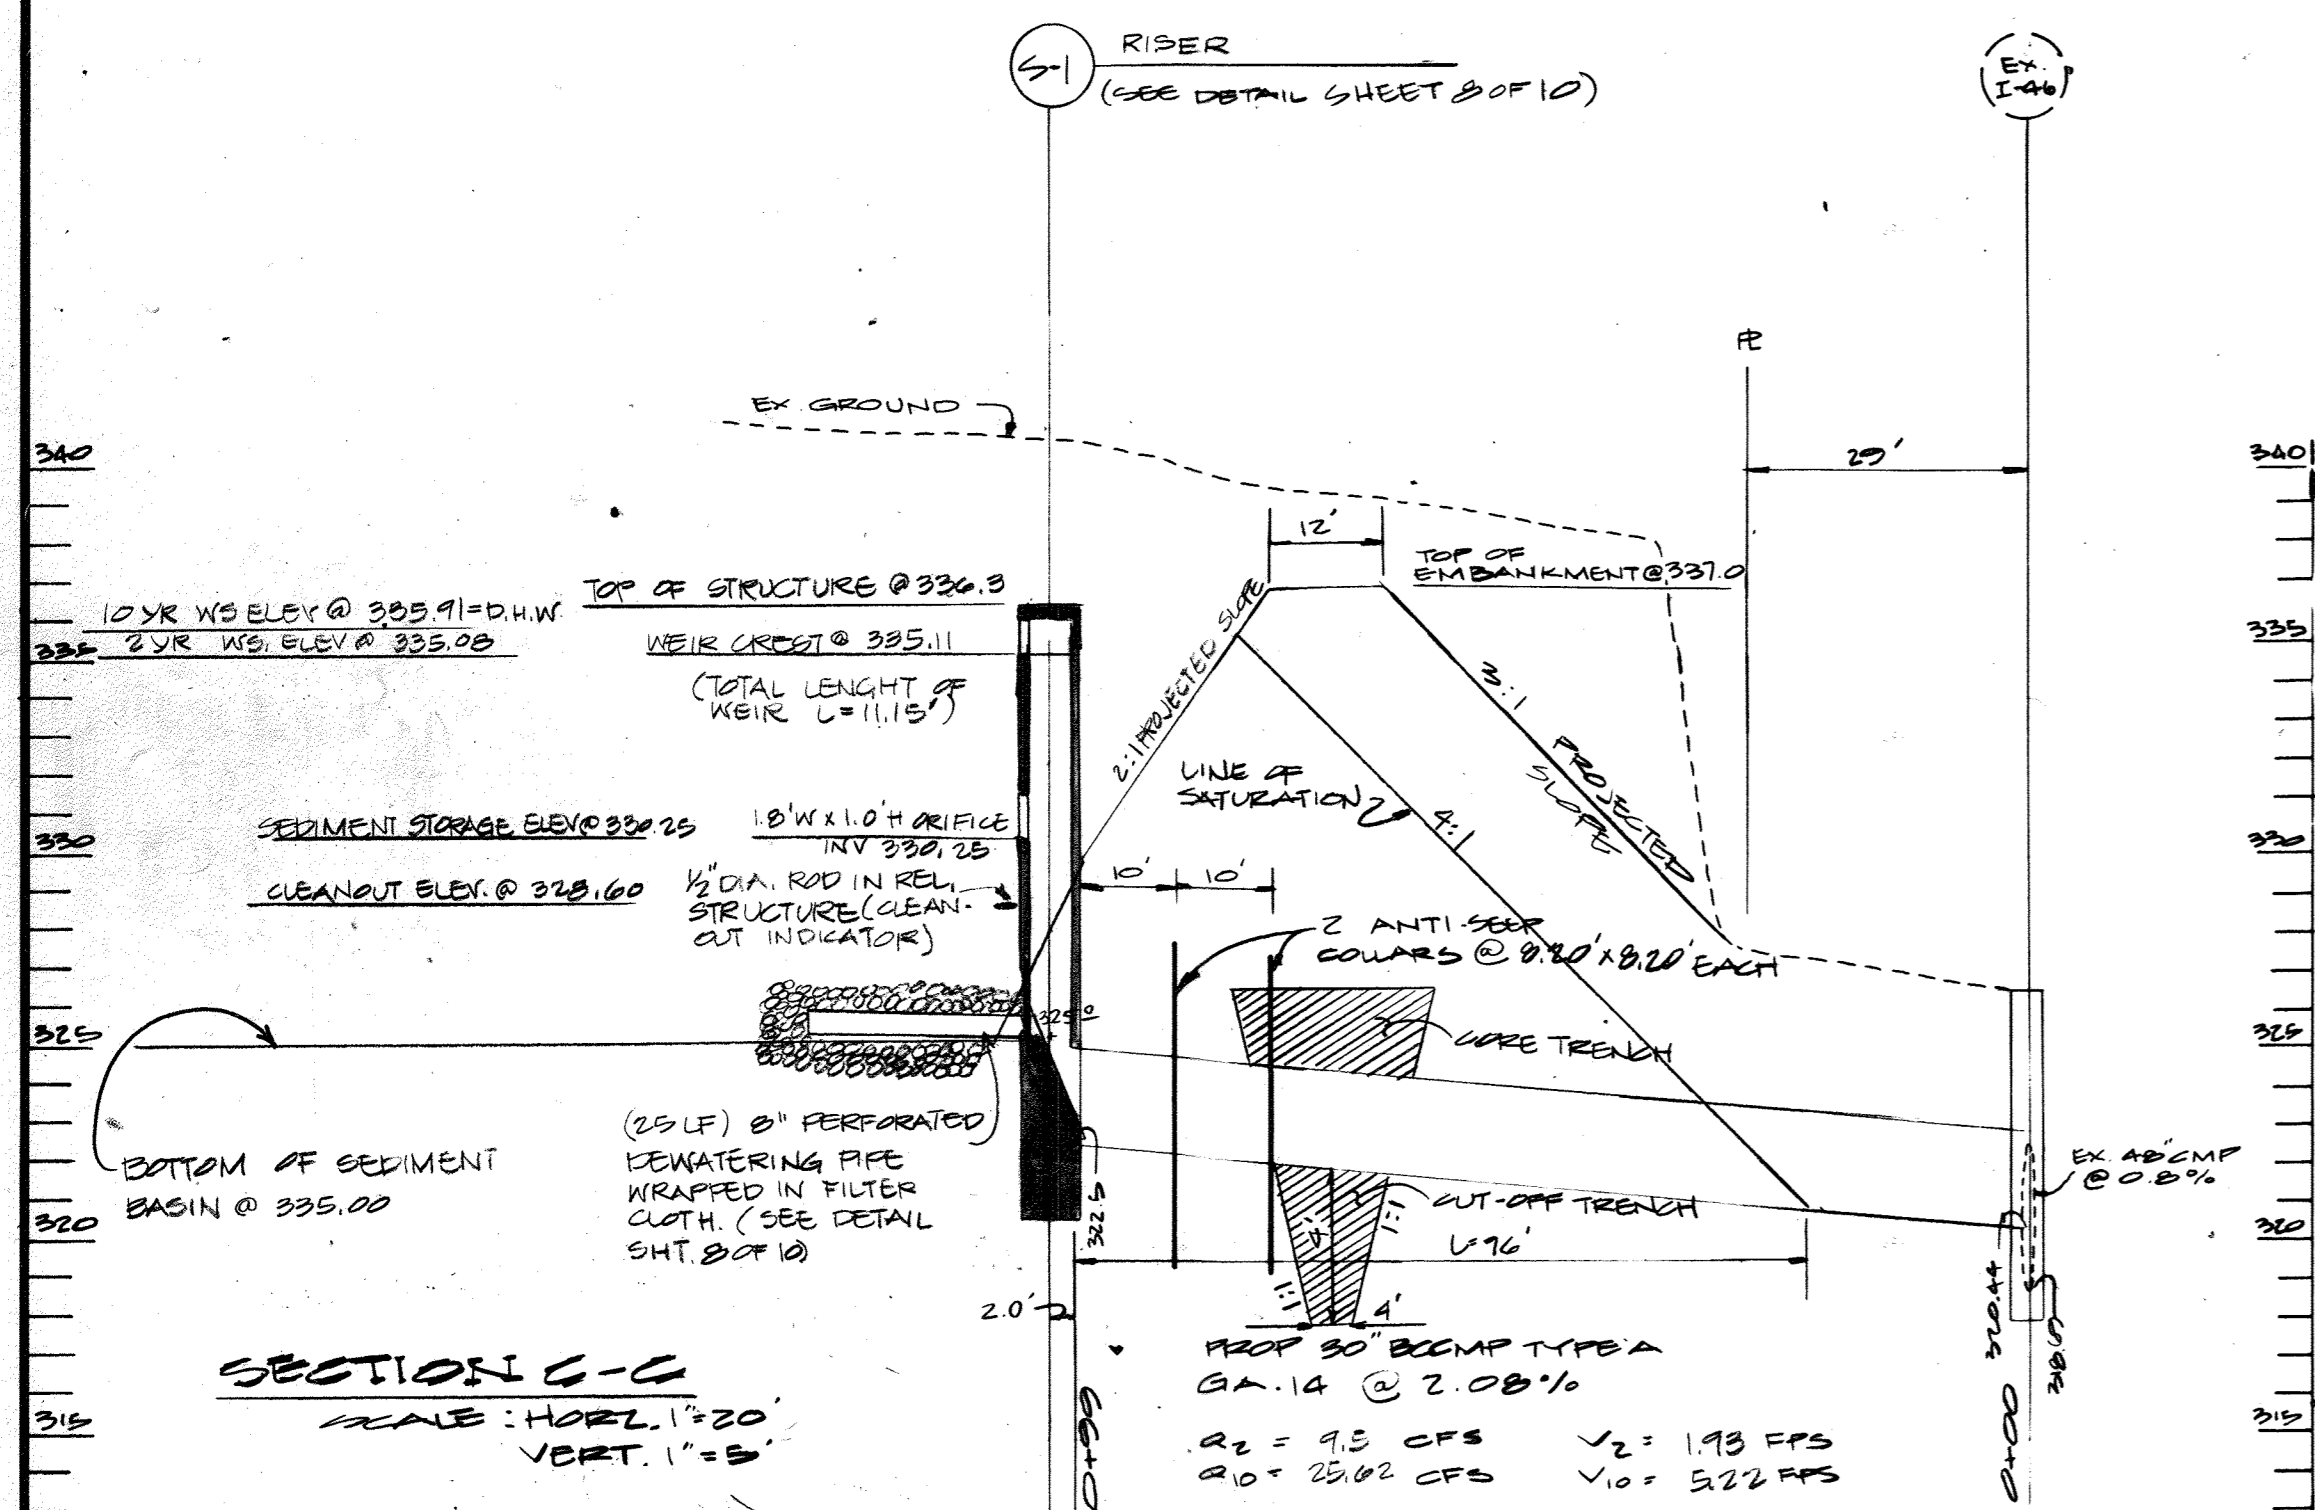 S-1
RISER
(SEE DETAIL SHEET 8 OF 10)
EX.
I-46
PL
EX. GROUND
340
340
29'
12'
TOP OF
EMBANKMENT @ 337.0
TOP OF STRUCTURE @ 336.3
10 YR WS ELEV @ 335.91 = D.H.W.
2 YR WS. ELEV @ 335.08
335
335
WEIR CREST @ 335.11
(TOTAL LENGHT OF
WEIR L=11.15')
2:1 PROJECTED SLOPE
3:1
PROJECTED
SLOPE
LINE OF
SATURATION
4:1
SEDIMENT STORAGE ELEV @ 330.25
1.8'W x 1.0'H ORIFICE
INV 330.25
330
330
CLEANOUT ELEV. @ 328.60
1/2" DIA. ROD IN REL.
STRUCTURE (CLEAN-
OUT INDICATOR)
10'
10'
2 ANTI-SEEP
COLLARS @ 8.20' x 8.20' EACH
325
325.0
325
CORE TRENCH
BOTTOM OF SEDIMENT
BASIN @ 335.00
(25 LF) 8" PERFORATED
DEWATERING PIPE
WRAPPED IN FILTER
CLOTH. (SEE DETAIL
SHT. 8 OF 10)
322.5
EX. 48" CMP
@ 0.8%
CUT-OFF TRENCH
4'
1:1
1:1
L=96'
320
320
2.0'
4'
320.44
318.69
PROP 30" BCCMP TYPE A
GA. 14 @ 2.08%
SECTION C-C
SCALE : HORZ. 1"=20'
VERT. 1"=5'
315
315
Q2 = 9.5 CFS
V2 = 1.93 FPS
Q10 = 25.62 CFS
V10 = 5.22 FPS
0+99
0+00